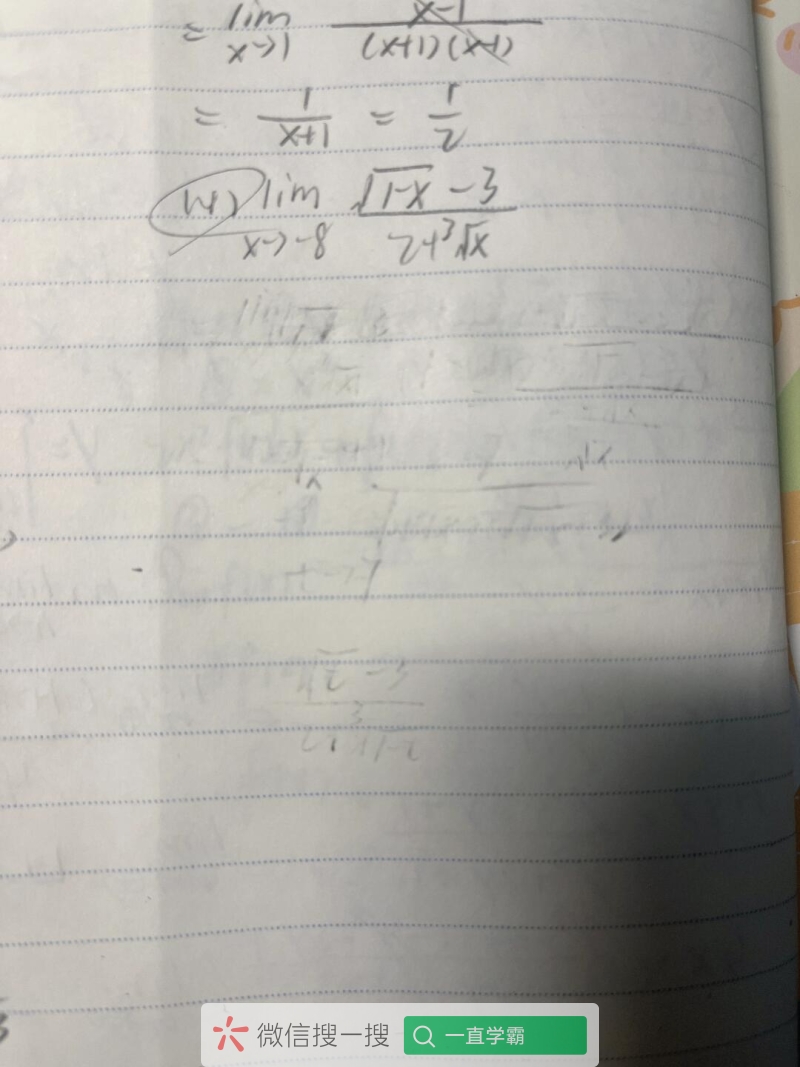 = lim x→1 x-1 / (x+1)(x-1)
= 1/x+1 = 1/2
lim x→-8 √1-x - 3 / 2+³√x
微信搜一搜 一直学霸